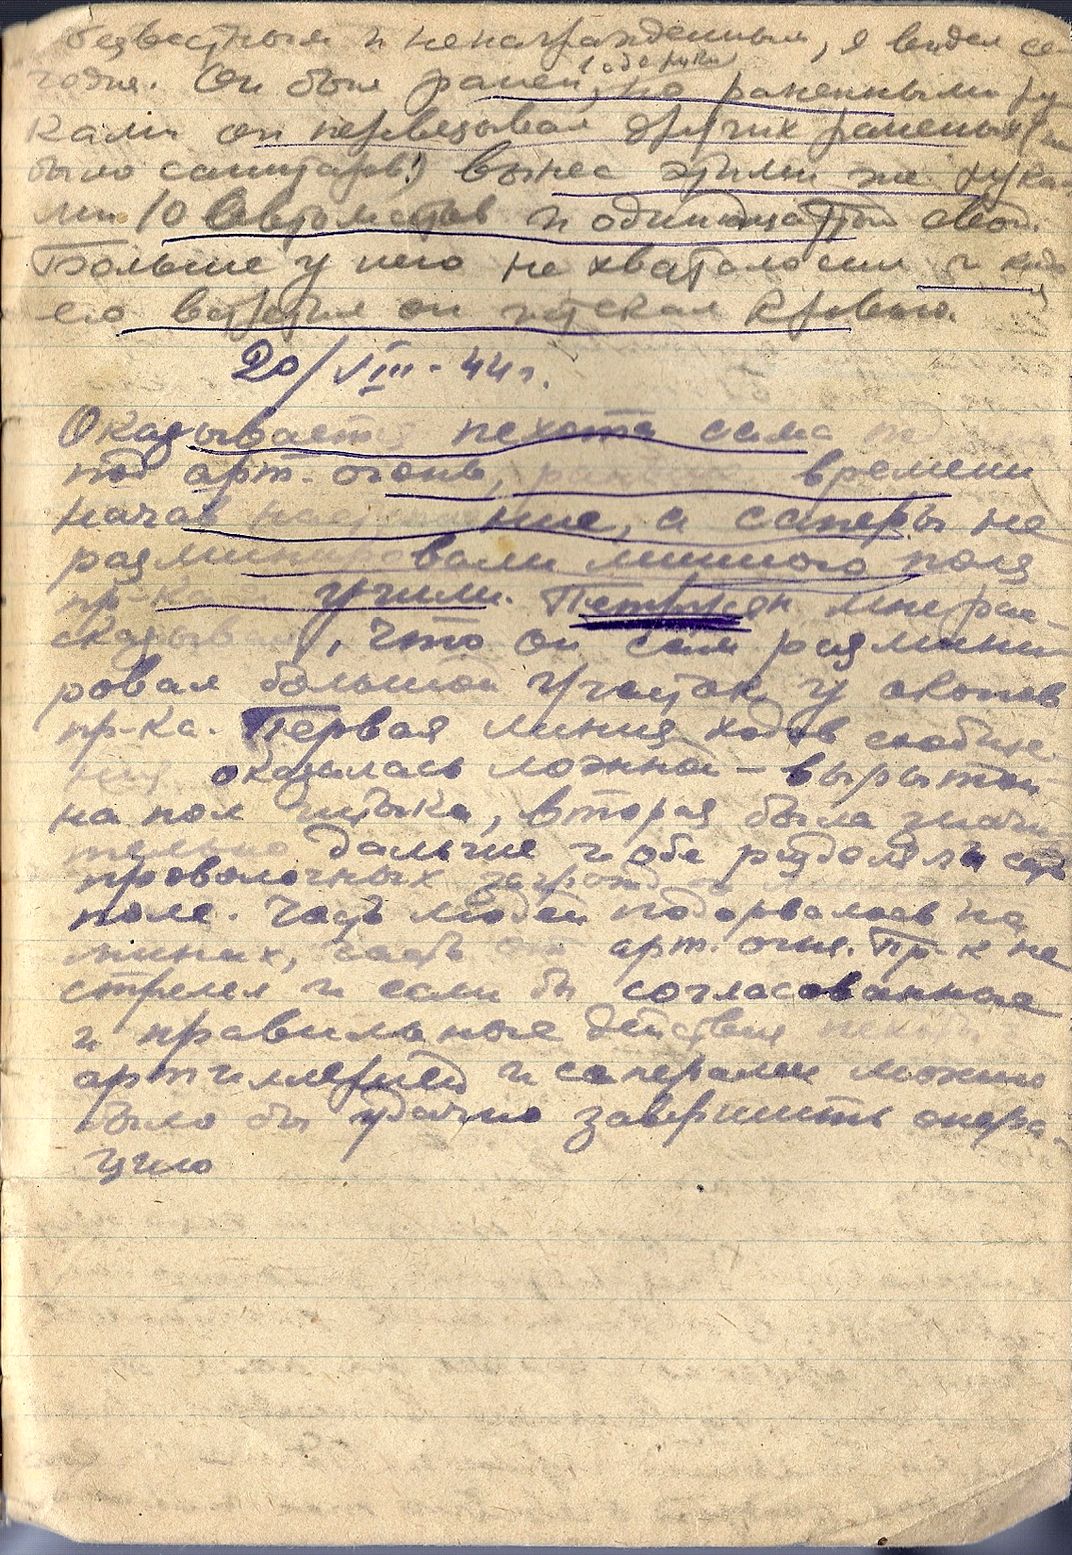 безвестным и ненагражденным, я видел се-
годня. Он был ранен в обе руки, но раненными ру
ками он перевязывал других раненых (не
было санитаров!) вынес этими же рука
ми 10 автоматов и одиннадцатый свой.
Больше у него не хватало сил и когда
его встретил он истекал кровью.
20/VIII-44 г.
Оказывается пехота сама
под арт. огонь, раньше времени
начав наступление, а саперы не
разминировали минного поля
пр-ка и учили. Петрусян мне рас-
сказывал, что он сам размини
ровал большой участок у окопов
пр-ка. Первая линия ходов сообще
ния оказалась ложной - вырытой
на пол штыка, вторая была значи
тельно дальше и обе разделяла сеть
проволочных загражд и минное
поле. Часть людей подорвалась на
минах, часть от арт. огня. Пр-к не
стрелял и если бы согласованные
и правильные действия пехоты
артиллерией и саперами можно
было бы удачно завершить опера-
цию